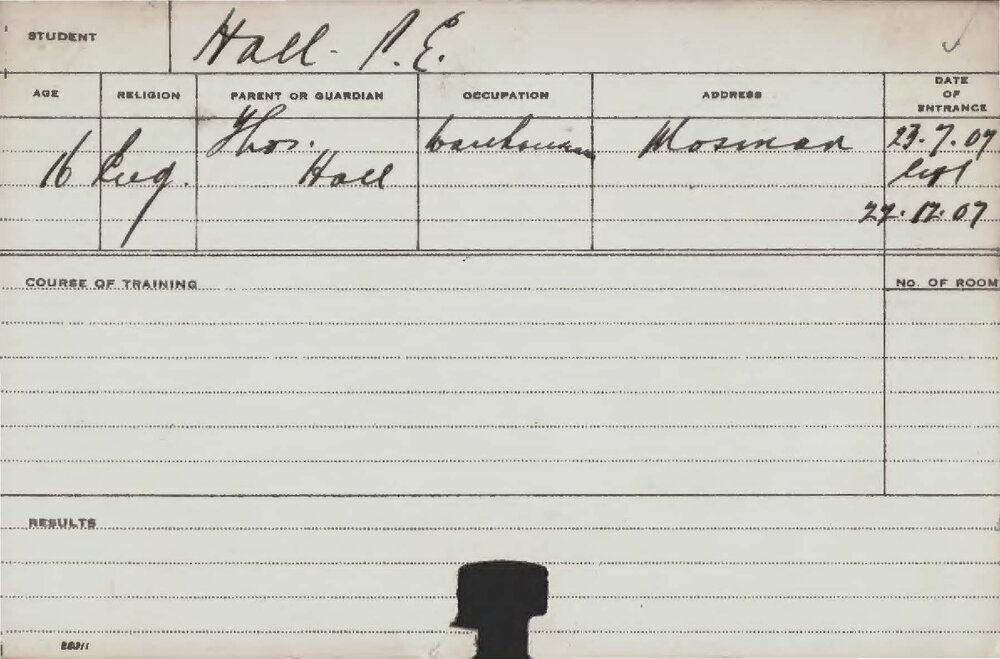 STUDENT Hall. P.E.
AGE RELIGION PARENT OR GUARDIAN OCCUPATION ADDRESS DATE OF ENTRANCE
Thos. Warehouseman Mosman 23.7.07
16 Eng. Hall left
27.12.07
COURSE OF TRAINING NO. OF ROOM
RESULTS